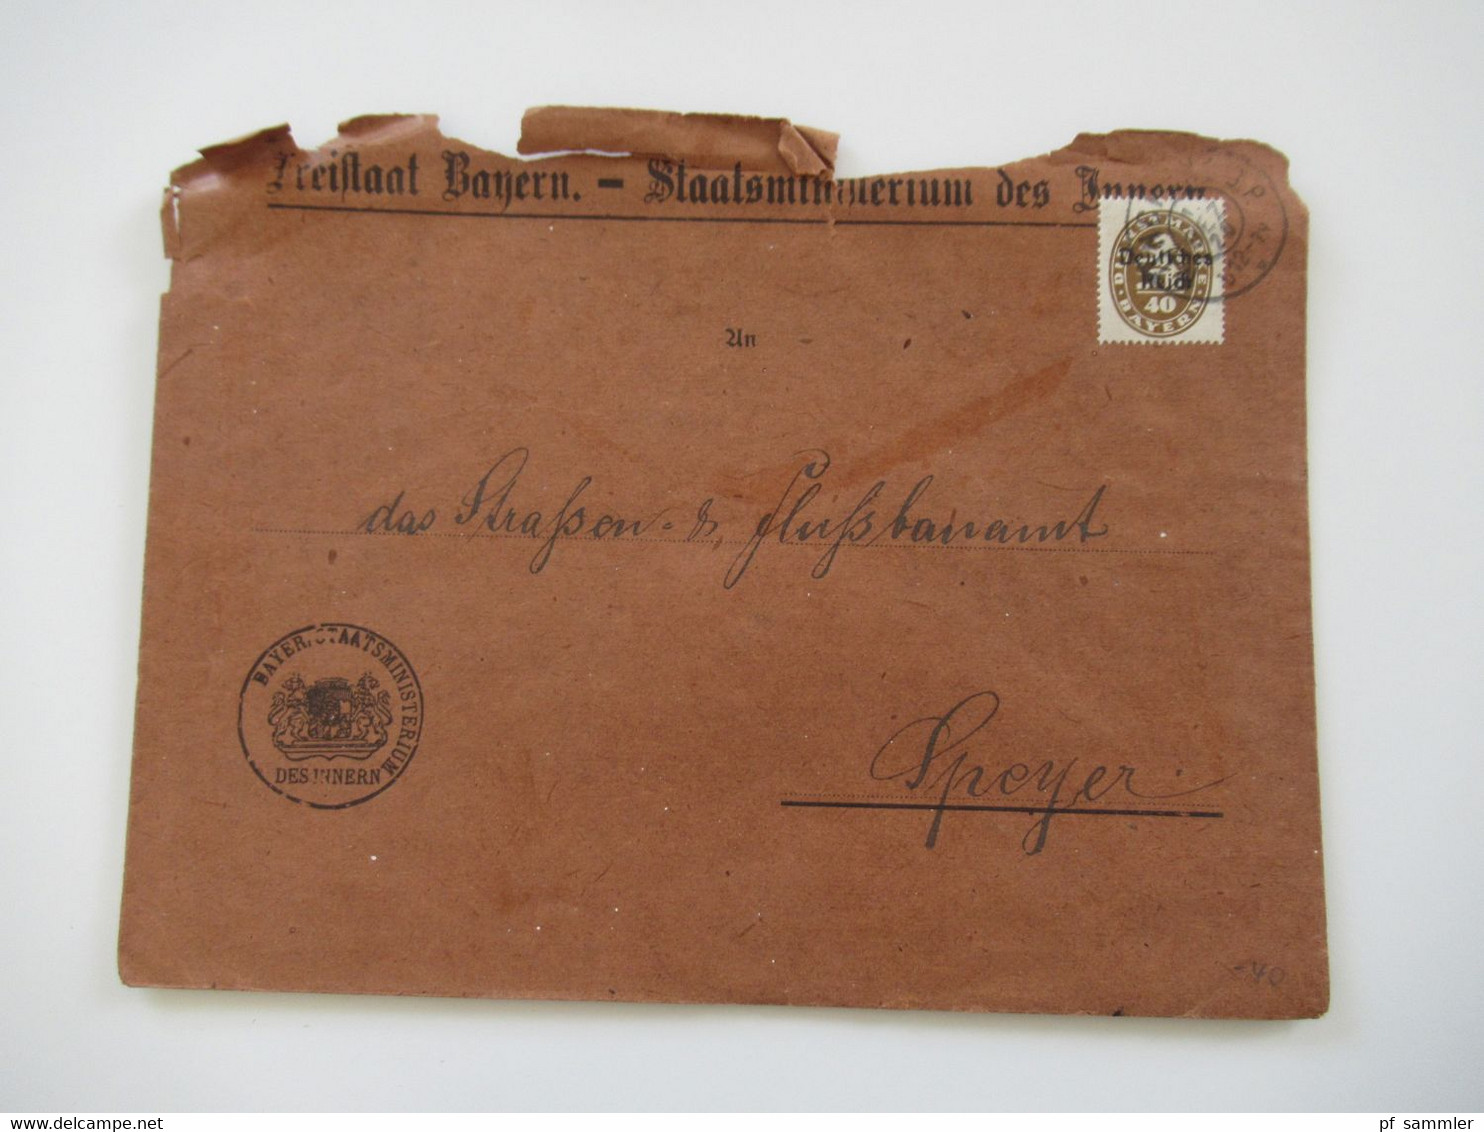 Freistaat Bayern. – Staatsministerium des Innern
Deutsches
Reich
40
BAYERN
An
das Straßen- & Flußbauamt
BAYER. STAATSMINISTERIUM
DES INNERN
Speyer.
-40
www.delcampe.net
pf_sammler